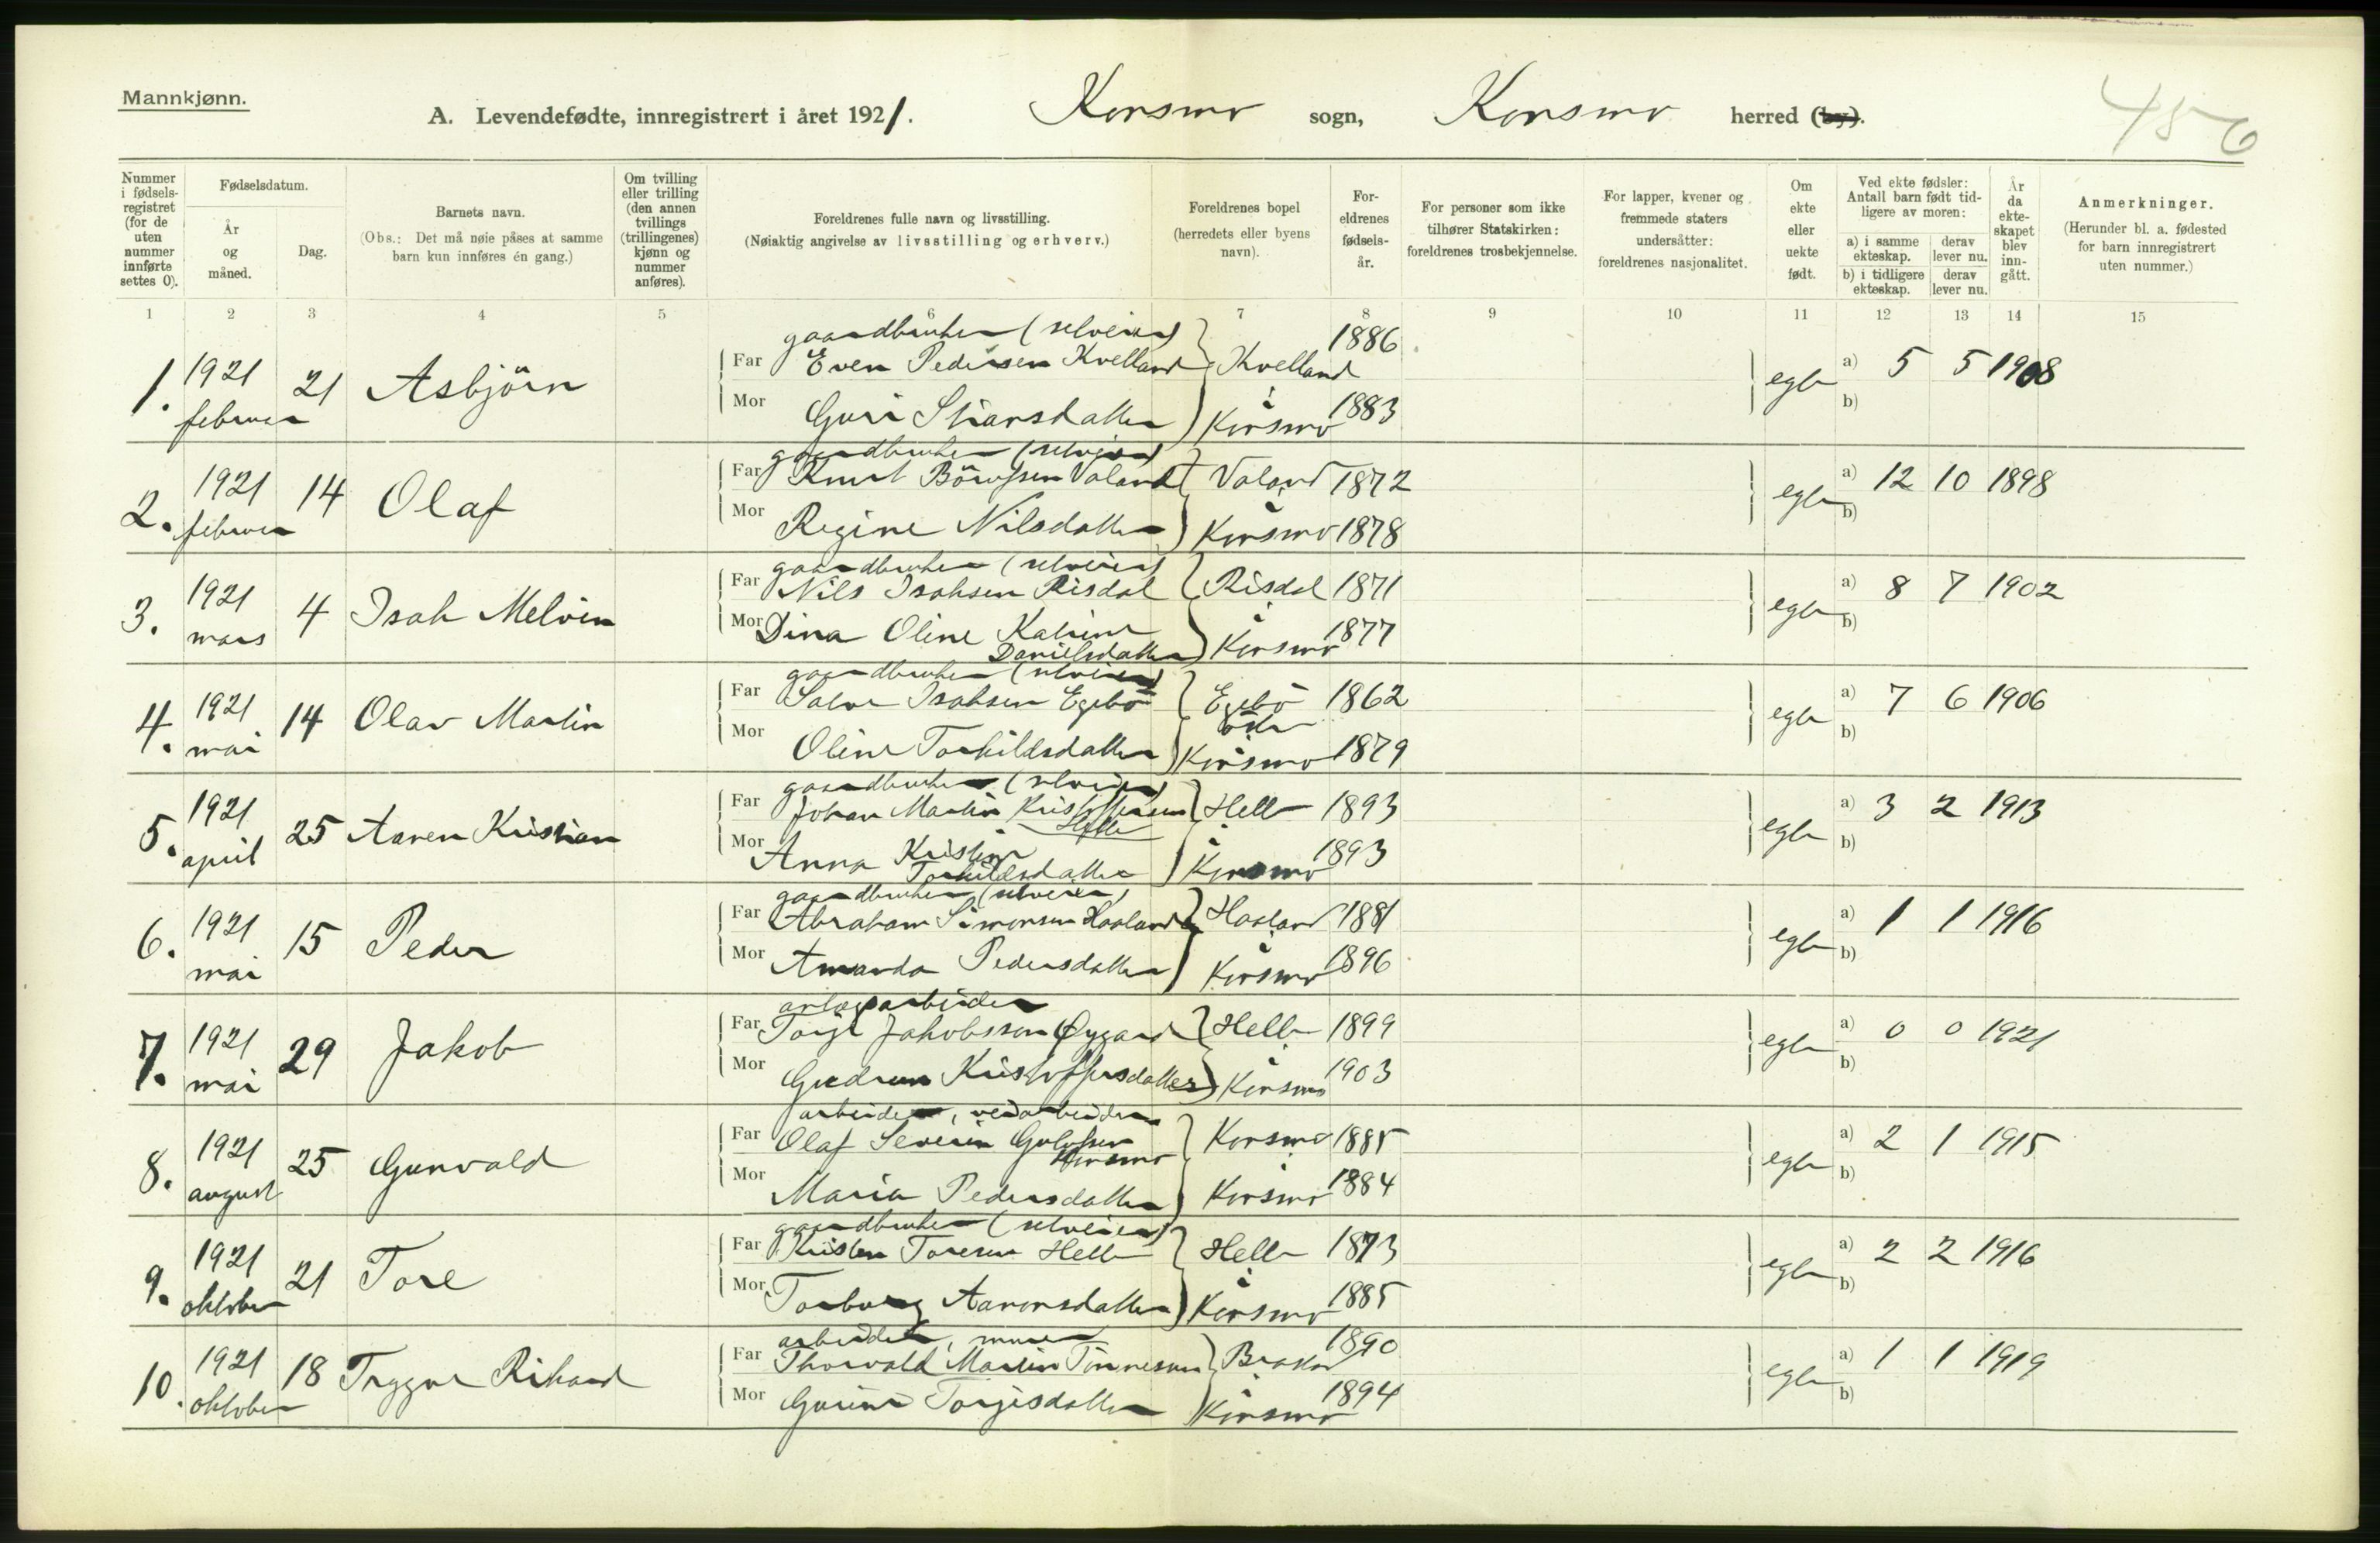 Mannkjønn.
A. Levendefødte, innregistrert i året 1921. Konsmo sogn, Konsmo herred (by).
456
Nummer i fødsels-registret (for de uten nummer innførte settes 0).
Fødselsdatum.
År og måned.
Dag.
Barnets navn.
(Obs.: Det må nøie påses at samme barn kun innføres én gang.)
Om tvilling eller trilling (den annen tvillings (trillingenes) kjønn og nummer anføres).
Foreldrenes fulle navn og livsstilling.
(Nøiaktig angivelse av livsstilling og erhverv.)
Foreldrenes bopel (herredets eller byens navn).
For-eldrenes fødsels-år.
For personer som ikke tilhører Statskirken: foreldrenes trosbekjennelse.
For lapper, kvener og fremmede staters undersåtter: foreldrenes nasjonalitet.
Om ekte eller uekte født.
Ved ekte fødsler: Antall barn født tid-ligere av moren:
a) i samme ekteskap.
derav lever nu.
b) i tidligere ekteskap.
derav lever nu.
År da ekte-skapet blev inn-gått.
Anmerkninger.
(Herunder bl. a. fødested for barn innregistrert uten nummer.)
1 2 3 4 5 6 7 8 9 10 11 12 13 14 15
gaardbruker (selveier) 1886
1. 1921 21 Asbjörn Far Even Pedersen Kvelland Kvelland egte a) 5 5 1908
februar Mor Guri Stiansdatter i Konsmo 1883 b)
gaardbruker (selveier)
2. 1921 14 Olaf Far Knut Börufsen Valand Valand 1872 egte a) 12 10 1898
februar Mor Regine Nilsdatter i Konsmo 1878 b)
gaardbruker (selveier)
3. 1921 4 Isak Melvin Far Nils Isaksen Risdal Risdal 1871 egte a) 8 7 1902
mars Mor Dina Oline Katrine Danielsdatter i Konsmo 1877 b)
gaardbruker (selveier)
4. 1921 14 Olav Martin Far Salve Isaksen Egebö Egebö 1862 egte a) 7 6 1906
mai Mor Oline Torkildsdatter i Konsmo 1879 b)
gaardbruker (selveier)
5. 1921 25 Aanen Kristian Far Johan Martin Kristoffersen Helle Helle 1893 egte a) 3 2 1913
april Mor Anna Kristine Torkildsdatter i Konsmo 1893 b)
gaardbruker (selveier)
6. 1921 15 Peder Far Abraham Simonsen Haaland Haaland 1881 egte a) 1 1 1916
mai Mor Amanda Pedersdatter i Konsmo 1896 b)
anlægsarbeider
7. 1921 29 Jakob Far Torje Jakobsson Øygard Helle 1899 egte a) 0 0 1921
mai Mor Gudrun Kristoffersdatter i Konsmo 1903 b)
arbeider, vedarbeider
8. 1921 25 Gunvald Far Olaf Severin Konsmo Konsmo 1885 egte a) 2 1 1915
august Mor Maria Pedersdatter i Konsmo 1884 b)
gaardbruker (selveier)
9. 1921 21 Tore Far Kristen Toresen Helle Helle 1873 egte a) 2 2 1916
oktober Mor Torborg Aanonsdatter i Konsmo 1885 b)
arbeider, murer 1890
10. 1921 18 Tryggve Rikard Far Thorvald Martin Tönnesen egte a) 1 1 1919
oktober Mor Gurine Torjisdatter i Konsmo 1894 b)